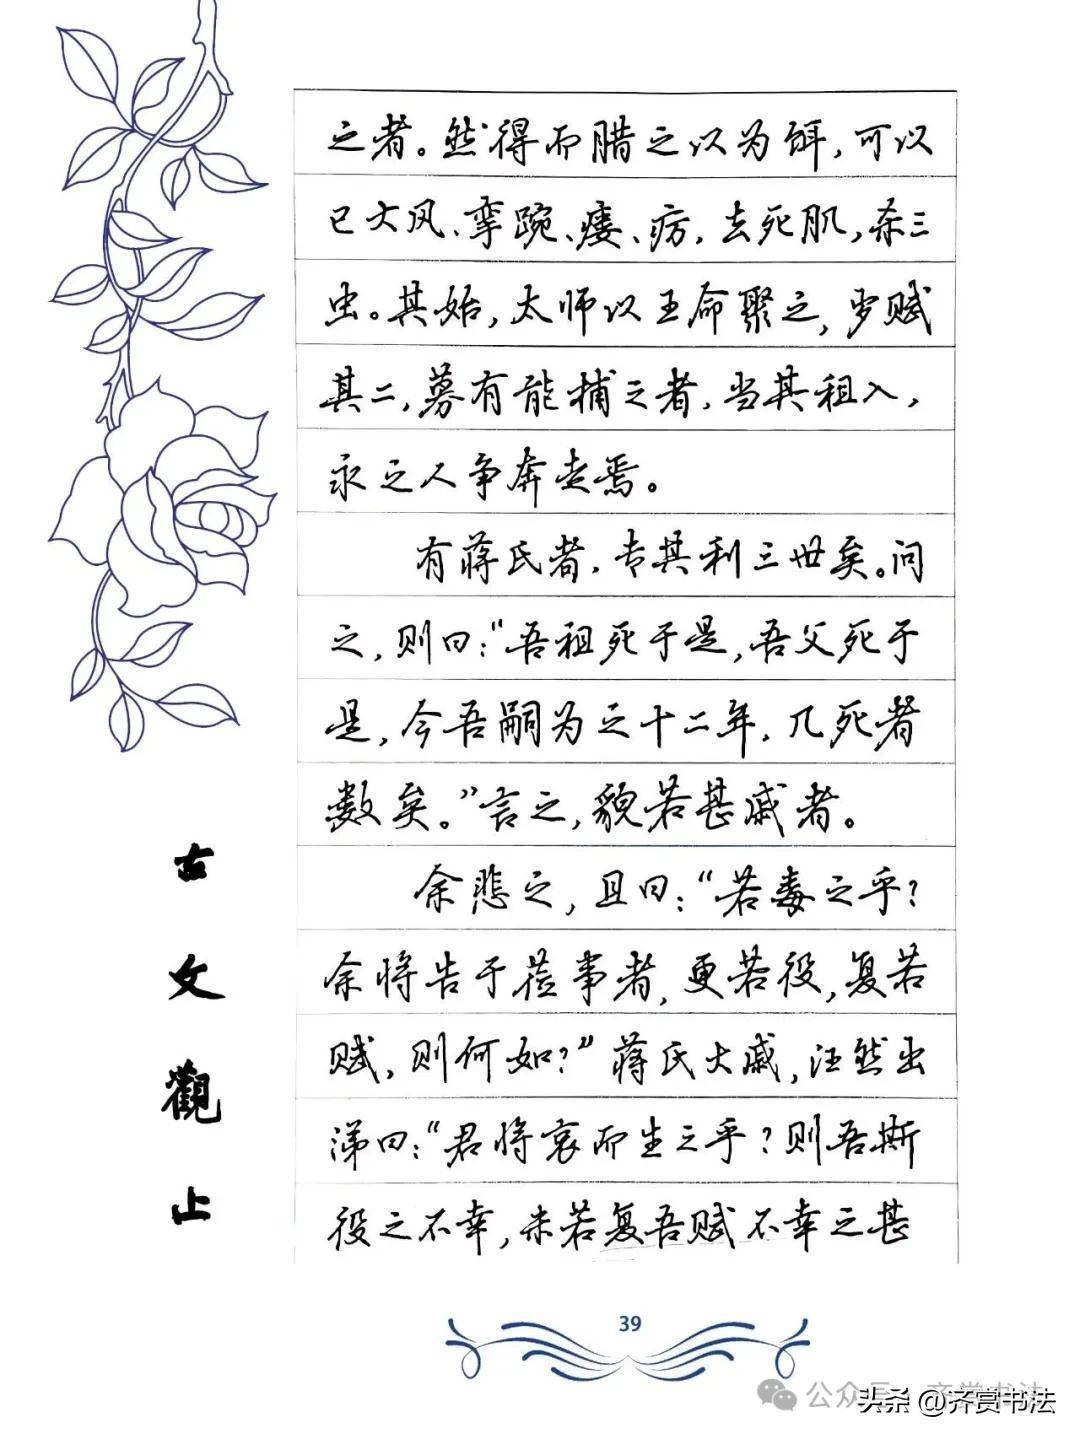 之者。然得而腊之以为饵，可以
已大风、挛踠、瘘、疠，去死肌，杀三
虫。其始，太师以王命聚之，岁赋
其二，募有能捕之者，当其租入，
永之人争奔走焉。
有蒋氏者，专其利三世矣。问
之，则曰：“吾祖死于是，吾父死于
是，今吾嗣为之十二年，几死者
数矣。”言之，貌若甚戚者。
余悲之，且曰：“若毒之乎？
余将告于莅事者，更若役，复若
赋，则何如？”蒋氏大戚，汪然出
涕曰：“君将哀而生之乎？则吾斯
役之不幸，未若复吾赋不幸之甚
古文觀止
39
公众号 齐赏书法
头条 @齐赏书法